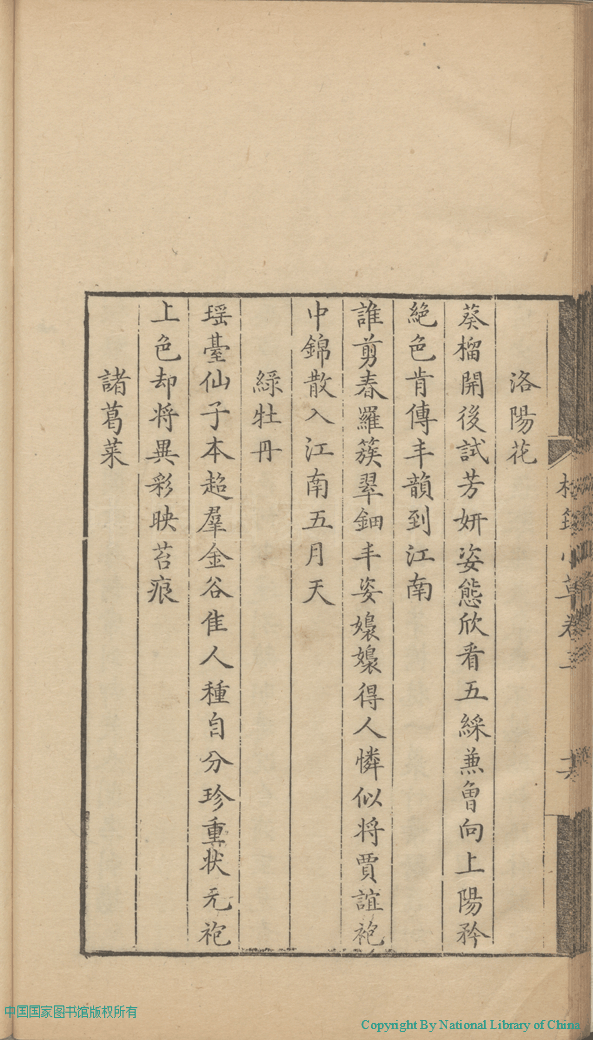 洛陽花
葵榴開後試芳妍姿態欣看五綵兼曾向上陽矜
絕色肯傳丰韻到江南
誰剪春羅簇翠鈿丰姿嬝嬝得人憐似將賈誼袍
中錦散入江南五月天
綠牡丹
瑶臺仙子本超羣金谷隹人種自分珍重状元袍
上色却将異彩映苔痕
諸葛菜
小草卷
中国国家图书馆版权所有
Copyright By National Library of China